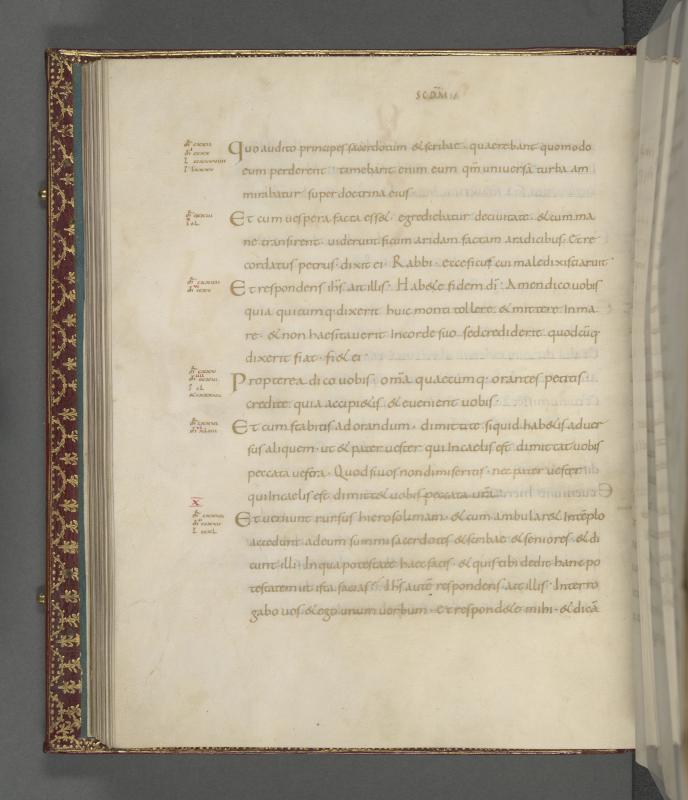 SCDM
Quo audito principes sacerdotum & scribae quaerebant quomodo
eum perderent timebant enim eum qm̄ universa turba am
mirabatur super doctrina eius
Et cum uespera facta ess& egrediebatur deciuitate &cum ma
ne transirent uiderunt ficum aridam factam aradicibus Etre
cordatus petrus dixit ei Rabbi ecceficus cui maledixisti aruit
Et respondens ihs̄ ait illis Hab&e fidem dī Amen dico uobis
quia quicumq· dixerit huic monti tollere & mittere Inma
re & non haesitauerit Incorde suo sedcrediderit quodcūq
dixerit fiat fi& ei
Propterea dico uobis omā quaecumq· orantes petitis
credite quia accipi&is & euenient uobis
Et cum stabitis ad orandum dimittite siquid hab&is aduer
sus aliquem ut & pater uester qui Incaelis est dimittat uobis
peccata uestra Quodsiuos nondimiseritis nec pater uester
qui Incaelis est dimitt& uobis peccata urā
X
Et ueniunt rursus hierosolimam & cum ambular& Intēplo
accedunt adeum summi sacerdotes &scribae &seniores &di
cunt illi Inqua potestate haec facis &quis tibi dedit hanc po
testatem ut ista facias Ihs̄ autē respondens ait illis Interro
gabo uos &ego unum uerbum &respond&e mihi &dicā